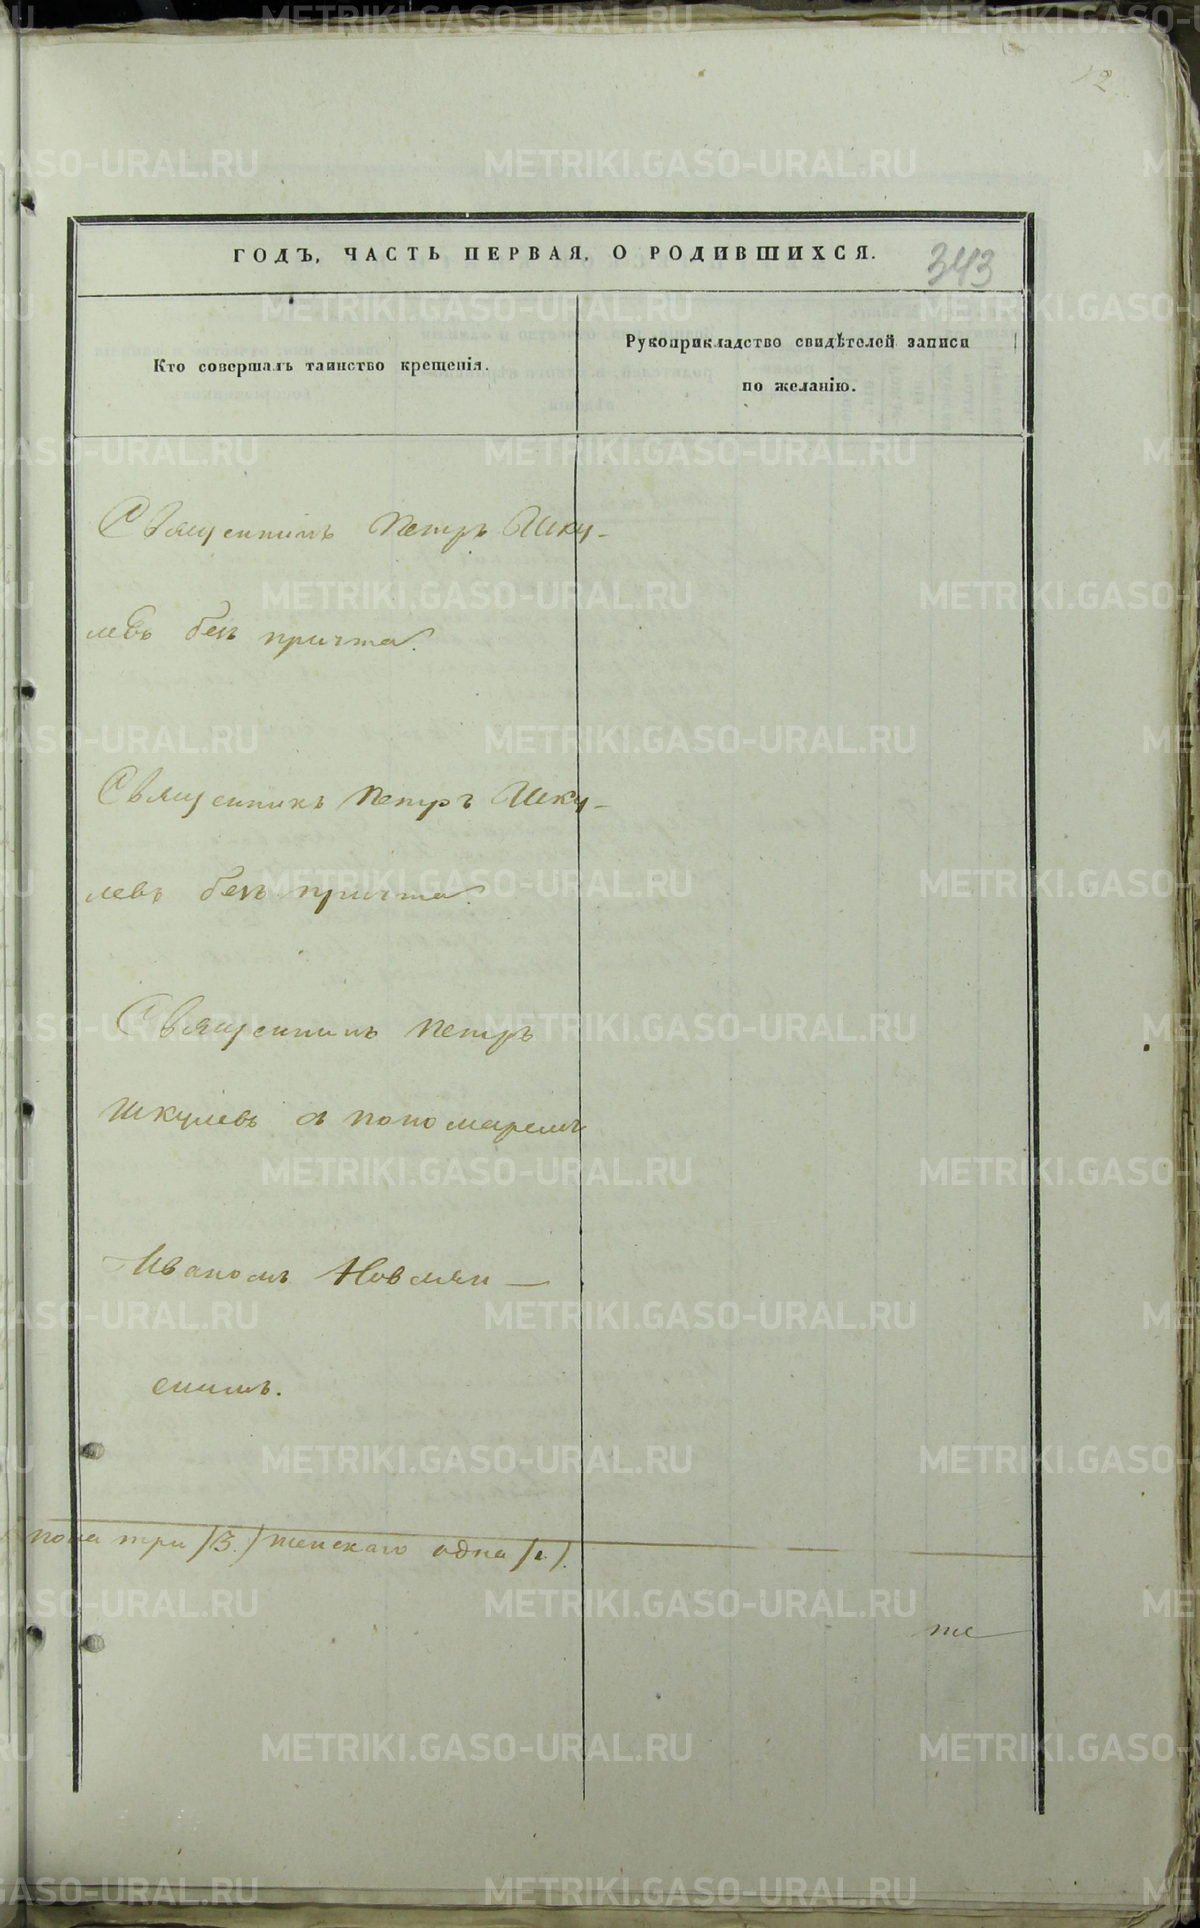 12
ГОДЪ, ЧАСТЬ ПЕРВАЯ, О РОДИВШИХСЯ.
343
Кто совершалъ таинство крещенія.
Рукоприкладство свидѣтелей записи
по желанію.
Священникъ Петръ Шку-
левъ безъ причта.
Священникъ Петръ Шку-
левъ безъ причта.
Священникъ Петръ
Шкулевъ съ пономаремъ
Иваномъ
скимъ.
пола три /3./ женскаго одна /1./.
же
METRIKI.GASO-URAL.RU